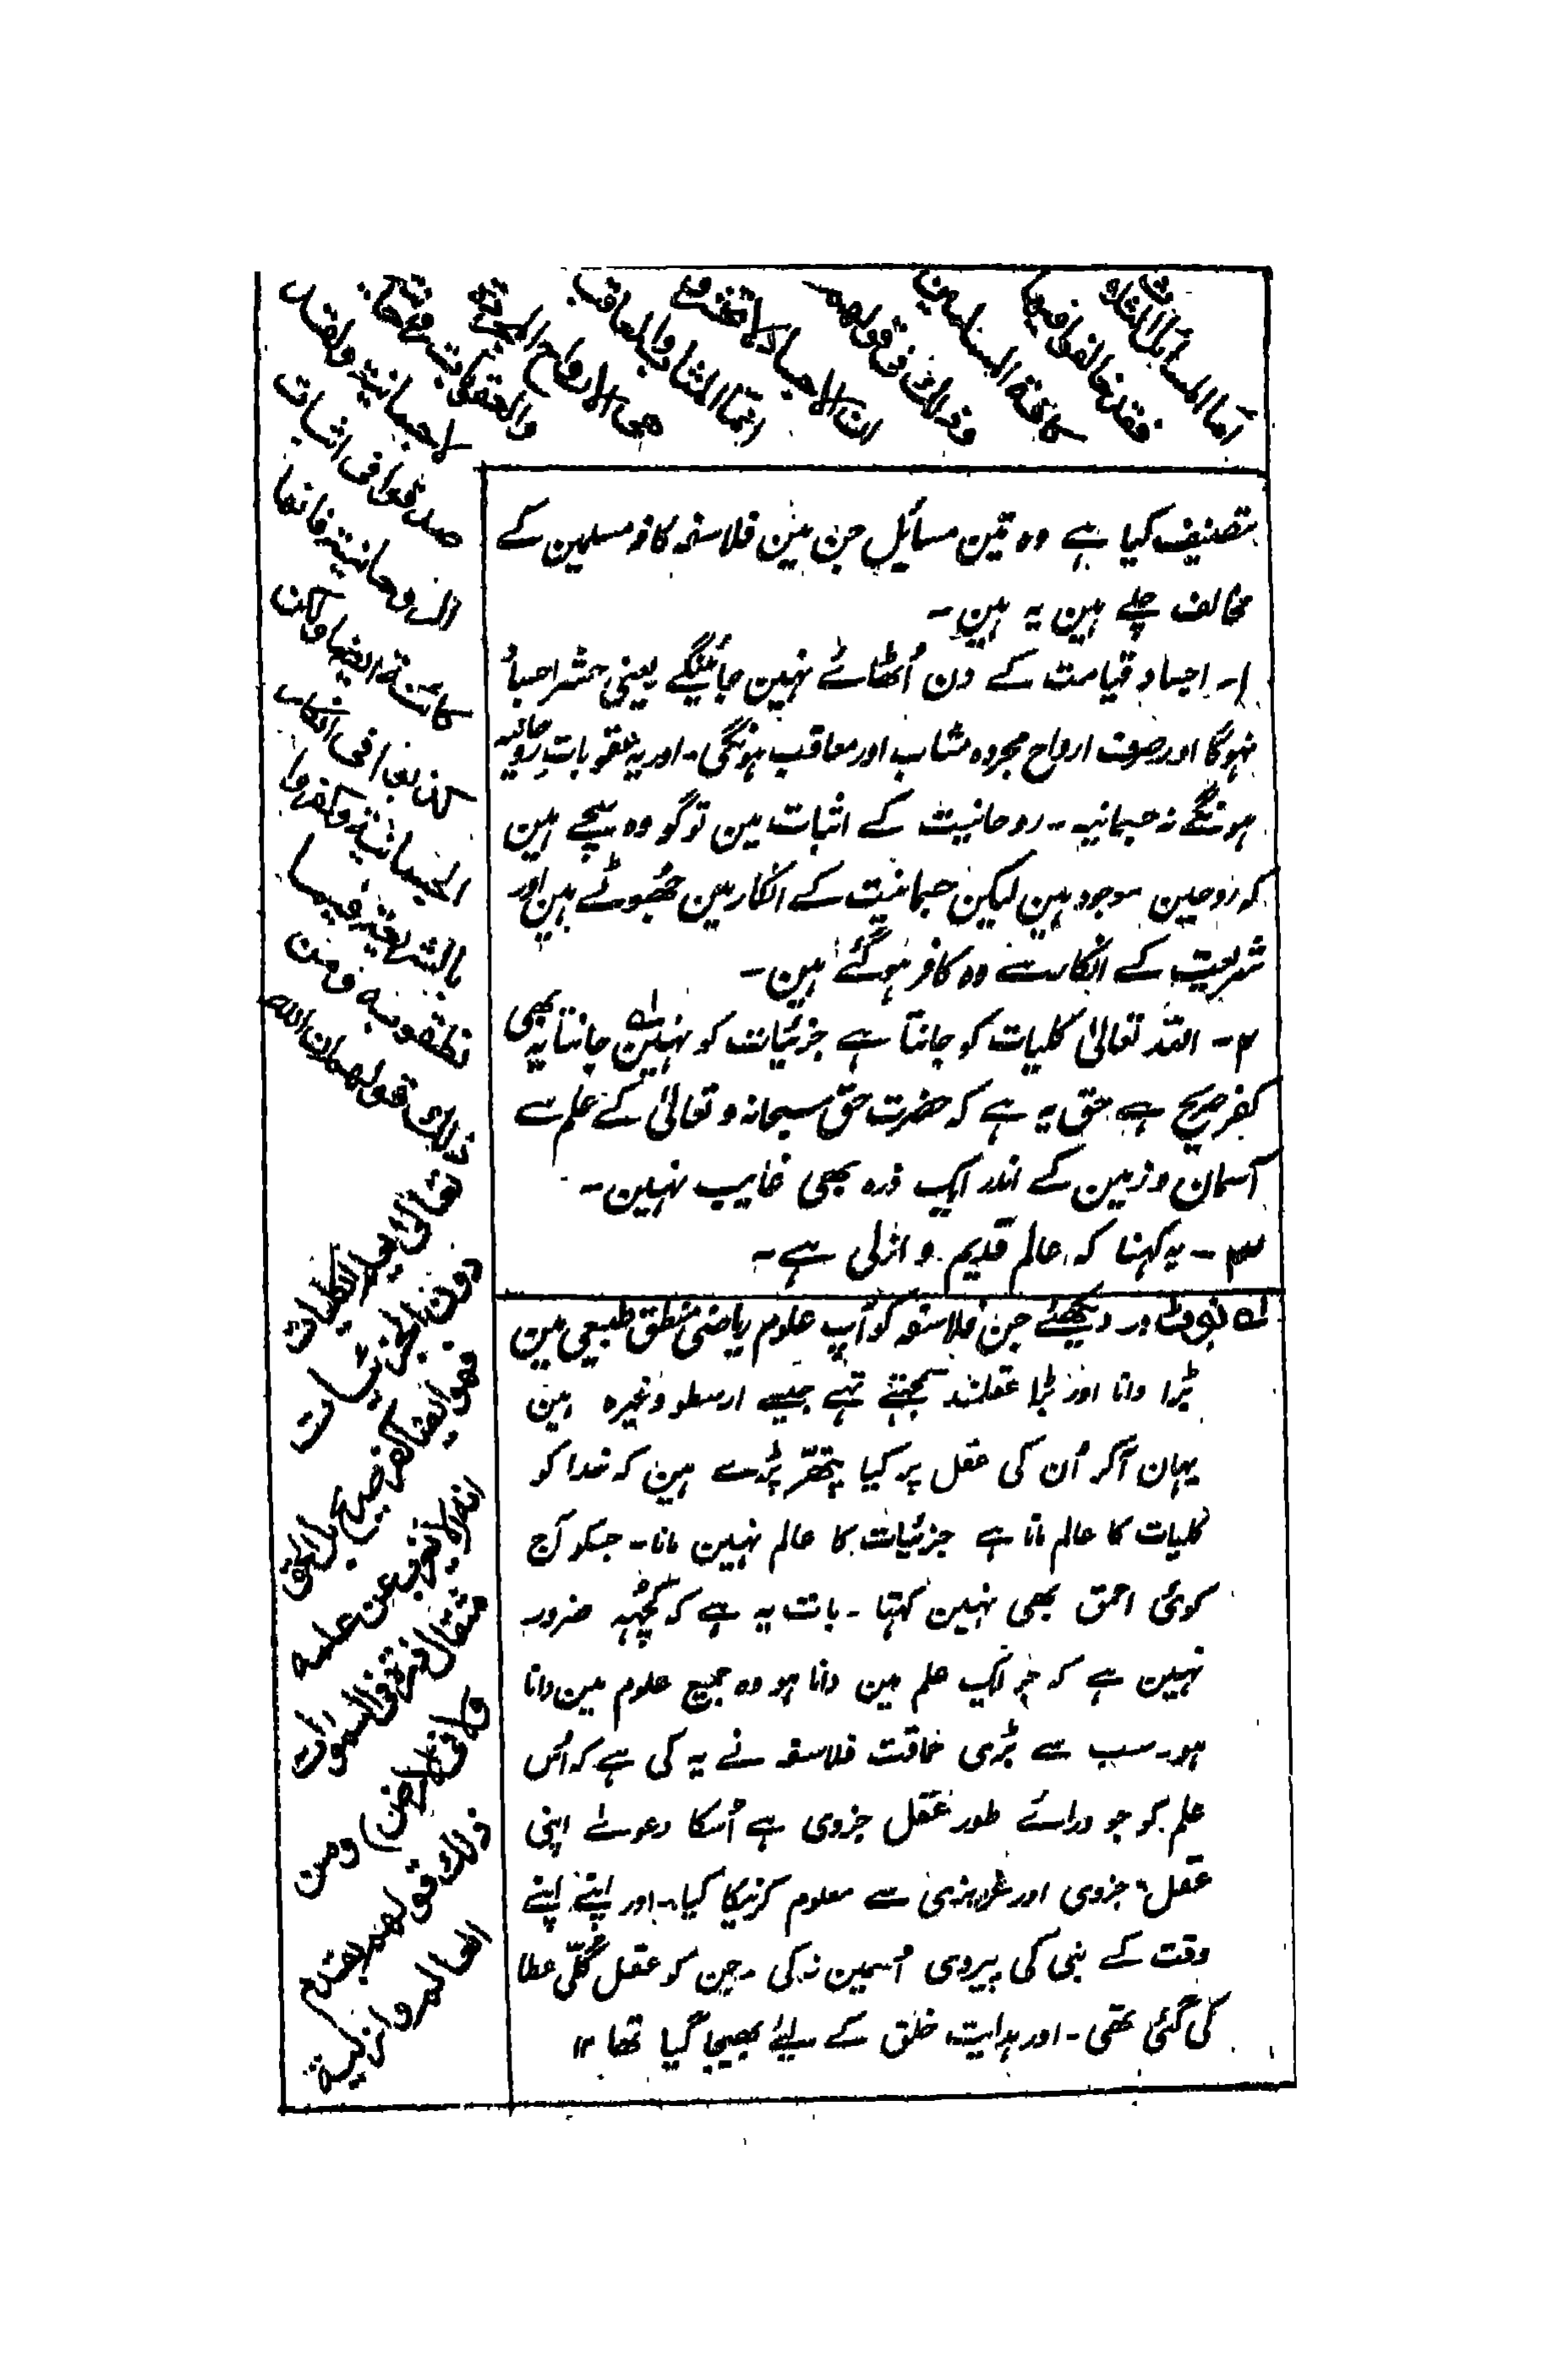 أما المسائل الثلاث
فقد خالفوا فيها
كافة المسلمين
وذلك في قولهم
ان الاجساد لا تحشر
انما المثاب والمعاقب
هي الارواح المجردة
والعقوبات روحانية
لا جسمانية ولقد
صدقوا فى اثبات
الروحانية فانها
كائنة ايضا ولكن
كذبوا فى انكار
الجسمانية وكفروا
بالشريعة فيما
نطقوا به ومن
ذلك قولهم ان الله
تعالى يعلم الكليات
دون الجزئيات
فهو ايضا كفر صريح بل الحق
انه لا يعزب عن علمه
مثقال ذرة فى السموات
ولا فى الارض) ومن
ذلك قولهم بقدم
العالم وازليته
تصنیف کیا ہے وہ تین مسائل جن مین فلاسفہ کافہ مسلمین کے
مخالف چلے ہین یہ ہین۔
۱۔ اجساد قیامت کے دن اُٹھائے نہین جائینگے یعنی حشر اجساد
نہوگا اور صرف ارواح مجردہ مثاب اور معاقب ہونگی۔ اور یہ عقوبات روحانیہ
ہونگے نہ جسمانیہ۔ روحانیت کے اثبات مین تو گو وہ سچے ہین
کہ روحین موجود ہین لیکن جسمانیت کے انکار مین جھُوٹے ہین اور
شریعت کے انکار سے وہ کافر ہوگئے ہین۔
۲۔ اللہ تعالیٰ کلیات کو جانتا ہے جزئیات کو نہین جانتا یہ بھی
کفر صریح ہے حق یہ ہے کہ حضرت حق سبحانہ و تعالیٰ کے علم سے
آسمان و زمین کے اندر ایک ذرہ بھی غایب نہین۔
۳۔ یہ کہنا کہ عالم قدیم و ازلی ہے۔
لہ نوٹ ور دیکھئے جن فلاسفہ کو آپ علوم ریاضی منطق طبیعی مین
بڑا دانا اور بڑا عقلمند سمجھتے تہے جیسے ارسطو وغیرہ ہین
یہان آکر اُن کی عقل پر کیا پتھّر پڑے ہین کہ خدا کو
کلیات کا عالم مانا ہے جزئیات کا عالم نہین مانا۔ جسکو آج
کوئی احمق بھی نہین کہتا۔ بات یہ ہے کہ کُچہہ ضرور
نہین ہے کہ جو ایک علم مین دانا ہو وہ جمیع علوم مین دانا
ہو۔ سب سے بڑی حماقت فلاسفہ نے یہ کی ہے کہ اُس
علم کو جو ورائے طور عقل جزوی ہے اُسکا دعوے اپنی
عقل جزوی اور سے معلوم کرنیکا کیا۔ اور اپنے اپنے
وقت کے نبی کی پیروی اُسمین نہ کی۔ جن کو عقل کُلّی عطا
کی گئی تھی۔ اور ہدایت خلق کے لیئے بھیجا گیا تھا ۱۲